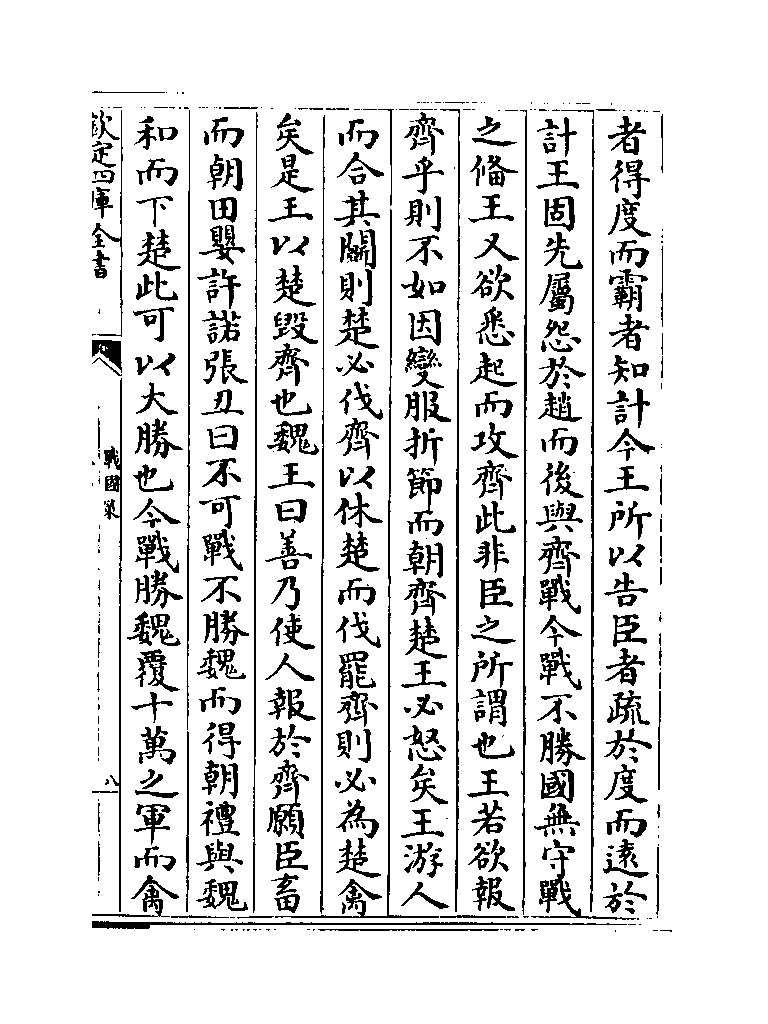 者得度而霸者知計今王所以告臣者疏於度而逺於
計王固先屬怨於趙而後與齊戰今戰不勝國無守戰
之備王又欲悉起而攻齊此非臣之所謂也王若欲報
齊乎則不如因變服折節而朝齊楚王必怒矣王游人
而合其鬭則楚必伐齊以休楚而伐罷齊則必為楚禽
矣是王以楚毀齊也魏王曰善乃使人報於齊願臣畜
而朝田嬰許諾張丑曰不可戰不勝魏而得朝禮與魏
和而下楚此可以大勝也今戰勝魏覆十萬之軍而禽
欽定四庫全書
戰國策
八